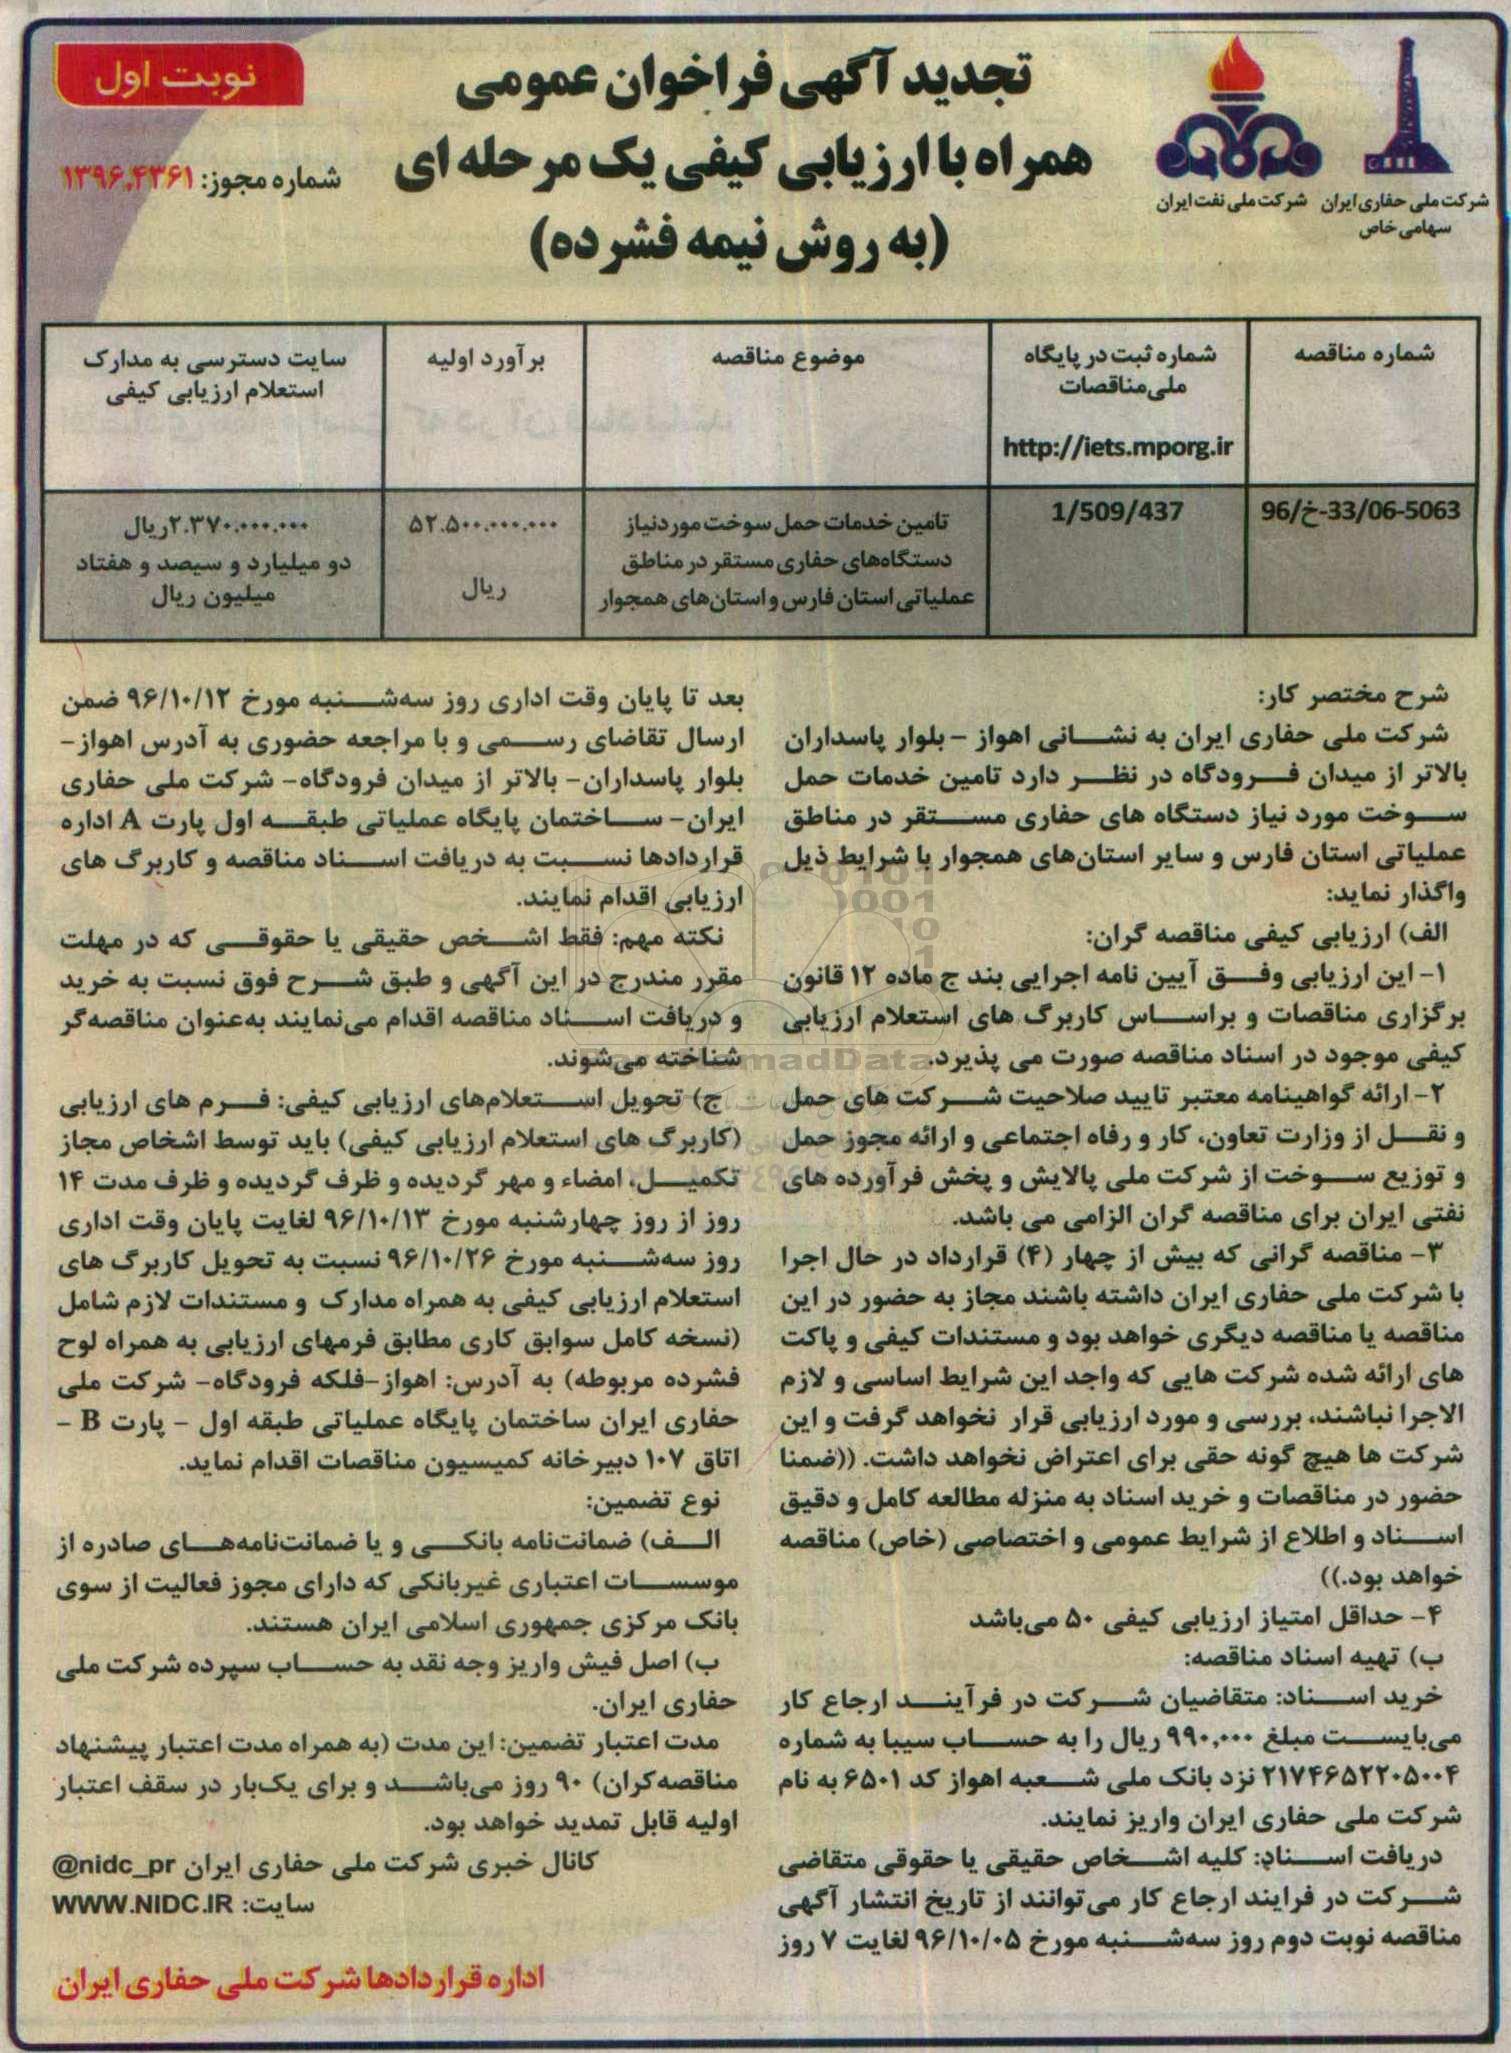 تجدید آگهی فراخوان عمومی
همراه با ارزیابی کیفی یک مرحله ای
(به روش نیمه فشرده)
نوبت اول
شماره مجوز: ۱۳۹۶,۴۳۶۱
شرکت ملی حفاری ایران
سهامی خاص
شرکت ملی نفت ایران
شماره مناقصه
شماره ثبت در پایگاه
ملی‌مناقصات
http://iets.mporg.ir
موضوع مناقصه
برآورد اولیه
سایت دسترسی به مدارک
استعلام ارزیابی کیفی
96/خ-33/06-5063
1/509/437
تامین خدمات حمل سوخت موردنیاز
دستگاه‌های حفاری مستقر در مناطق
عملیاتی استان فارس و استان‌های همجوار
۵۲.۵۰۰.۰۰۰.۰۰۰
ریال
۲.۳۷۰.۰۰۰.۰۰۰ریال
دو میلیارد و سیصد و هفتاد
میلیون ریال
شرح مختصر کار:
شرکت ملی حفاری ایران به نشانی اهواز – بلوار پاسداران
بالاتر از میدان فرودگاه در نظر دارد تامین خدمات حمل
سوخت مورد نیاز دستگاه های حفاری مستقر در مناطق
عملیاتی استان فارس و سایر استان‌های همجوار با شرایط ذیل
واگذار نماید:
الف) ارزیابی کیفی مناقصه گران:
۱- این ارزیابی وفق آیین نامه اجرایی بند ج ماده ۱۲ قانون
برگزاری مناقصات و براساس کاربرگ های استعلام ارزیابی
کیفی موجود در اسناد مناقصه صورت می پذیرد.
۲- ارائه گواهینامه معتبر تایید صلاحیت شرکت های حمل
و نقل از وزارت تعاون، کار و رفاه اجتماعی و ارائه مجوز حمل
و توزیع سوخت از شرکت ملی پالایش و پخش فرآورده های
نفتی ایران برای مناقصه گران الزامی می باشد.
۳- مناقصه گرانی که بیش از چهار (۴) قرارداد در حال اجرا
با شرکت ملی حفاری ایران داشته باشند مجاز به حضور در این
مناقصه یا مناقصه دیگری خواهد بود و مستندات کیفی و پاکت
های ارائه شده شرکت هایی که واجد این شرایط اساسی و لازم
الاجرا نباشند، بررسی و مورد ارزیابی قرار نخواهد گرفت و این
شرکت ها هیچ گونه حقی برای اعتراض نخواهد داشت. ((ضمنا
حضور در مناقصات و خرید اسناد به منزله مطالعه کامل و دقیق
اسناد و اطلاع از شرایط عمومی و اختصاصی (خاص) مناقصه
خواهد بود.))
۴- حداقل امتیاز ارزیابی کیفی ۵۰ می‌باشد
ب) تهیه اسناد مناقصه:
خرید اسناد: متقاضیان شرکت در فرآیند ارجاع کار
می‌بایست مبلغ ۹۹۰,۰۰۰ ریال را به حساب سیبا به شماره
۲۱۷۴۶۵۲۲۰۵۰۰۴ نزد بانک ملی شعبه اهواز کد ۶۵۰۱ به نام
شرکت ملی حفاری ایران واریز نمایند.
دریافت اسناد: کلیه اشخاص حقیقی یا حقوقی متقاضی
شرکت در فرایند ارجاع کار می‌توانند از تاریخ انتشار آگهی
مناقصه نوبت دوم روز سه‌شنبه مورخ ۹۶/۱۰/۰۵ لغایت ۷ روز
بعد تا پایان وقت اداری روز سه‌شنبه مورخ ۹۶/۱۰/۱۲ ضمن
ارسال تقاضای رسمی و با مراجعه حضوری به آدرس اهواز-
بلوار پاسداران- بالاتر از میدان فرودگاه- شرکت ملی حفاری
ایران- ساختمان پایگاه عملیاتی طبقه اول پارت A اداره
قراردادها نسبت به دریافت اسناد مناقصه و کاربرگ های
ارزیابی اقدام نمایند.
نکته مهم: فقط اشخص حقیقی یا حقوقی که در مهلت
مقرر مندرج در این آگهی و طبق شرح فوق نسبت به خرید
و دریافت اسناد مناقصه اقدام می‌نمایند به‌عنوان مناقصه‌گر
شناخته می‌شوند.
ج) تحویل استعلام‌های ارزیابی کیفی: فرم های ارزیابی
(کاربرگ های استعلام ارزیابی کیفی) باید توسط اشخاص مجاز
تکمیل، امضاء و مهر گردیده و ظرف گردیده و ظرف مدت ۱۴
روز از روز چهارشنبه مورخ ۹۶/۱۰/۱۳ لغایت پایان وقت اداری
روز سه‌شنبه مورخ ۹۶/۱۰/۲۶ نسبت به تحویل کاربرگ های
استعلام ارزیابی کیفی به همراه مدارک و مستندات لازم شامل
(نسخه کامل سوابق کاری مطابق فرمهای ارزیابی به همراه لوح
فشرده مربوطه) به آدرس: اهواز-فلکه فرودگاه- شرکت ملی
حفاری ایران ساختمان پایگاه عملیاتی طبقه اول - پارت B -
اتاق ۱۰۷ دبیرخانه کمیسیون مناقصات اقدام نماید.
نوع تضمین:
الف) ضمانت‌نامه بانکی و یا ضمانت‌نامه‌های صادره از
موسسات اعتباری غیربانکی که دارای مجوز فعالیت از سوی
بانک مرکزی جمهوری اسلامی ایران هستند.
ب) اصل فیش واریز وجه نقد به حساب سپرده شرکت ملی
حفاری ایران.
مدت اعتبار تضمین: این مدت (به همراه مدت اعتبار پیشنهاد
مناقصه‌کران) ۹۰ روز می‌باشد و برای یک‌بار در سقف اعتبار
اولیه قابل تمدید خواهد بود.
کانال خبری شرکت ملی حفاری ایران @nidc_pr
سایت: WWW.NIDC.IR
اداره قراردادها شرکت ملی حفاری ایران